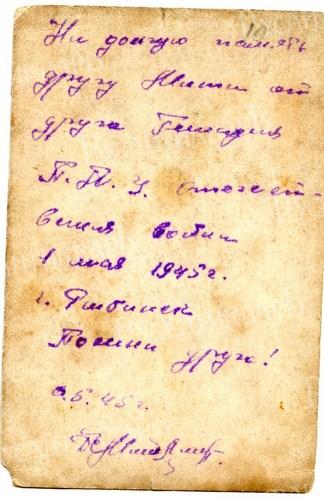 На долгую память
другу Мити от
друга Геннадия
П.П.У. отечест-
веная война
1 мая 1945г.
г. Рыбинск
Помни друга!
5.45г.